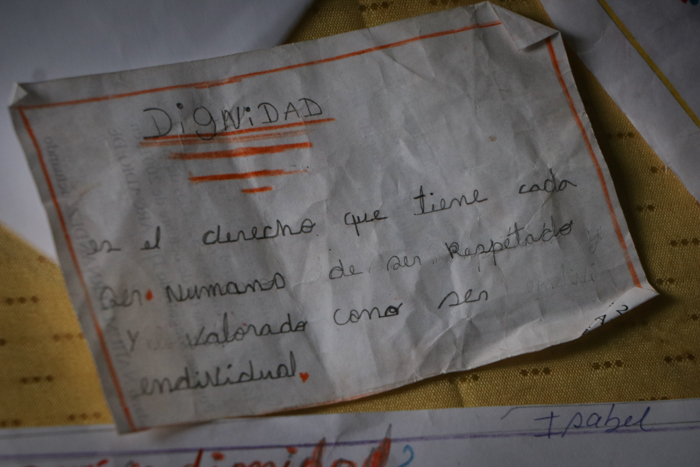 DigNiDAD
es el derecho que tiene cada
ser humano de ser Respetado
y valorado como ser
endividual.
Isabel